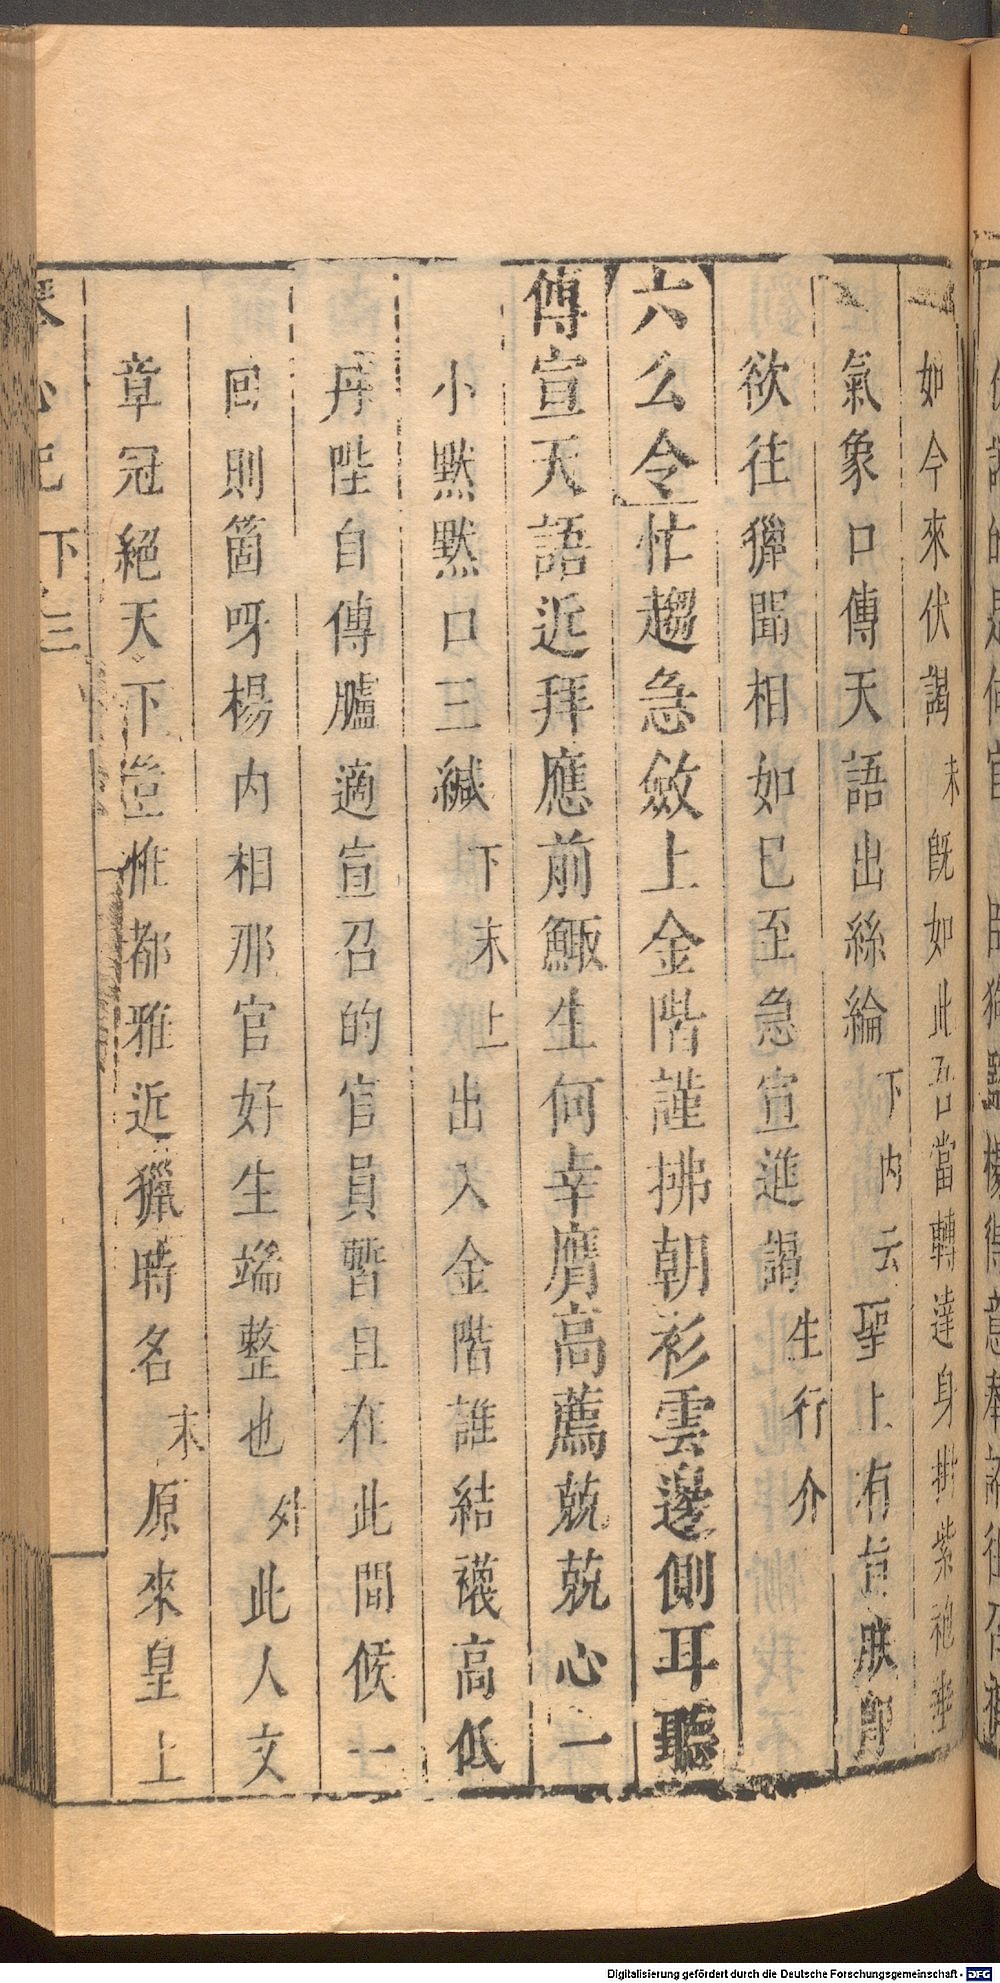 如今來伏謁末既如此吾當轉達身掛紫袍
氣象口傳天語出絲綸下内云聖上有旨朕
欲往獵聞相如已至急宣進謁生行介
六么令忙趨急斂上金階謹拂朝衫雲邊側耳聽
傳宣天語近拜應前鯫生何幸膺高薦兢兢心一
小默默口三緘下末上出入金階誰結襪高低
丹陛自傳臚適宣召的官員暫且在此間候一
回則箇呀楊内相那官好生端整也外此人文
章冠絕天下豈惟都雅近獵時名末原來皇上
琴心記 下 三
Digitalisierung gefördert durch die Deutsche Forschungsgemeinschaft - DFG